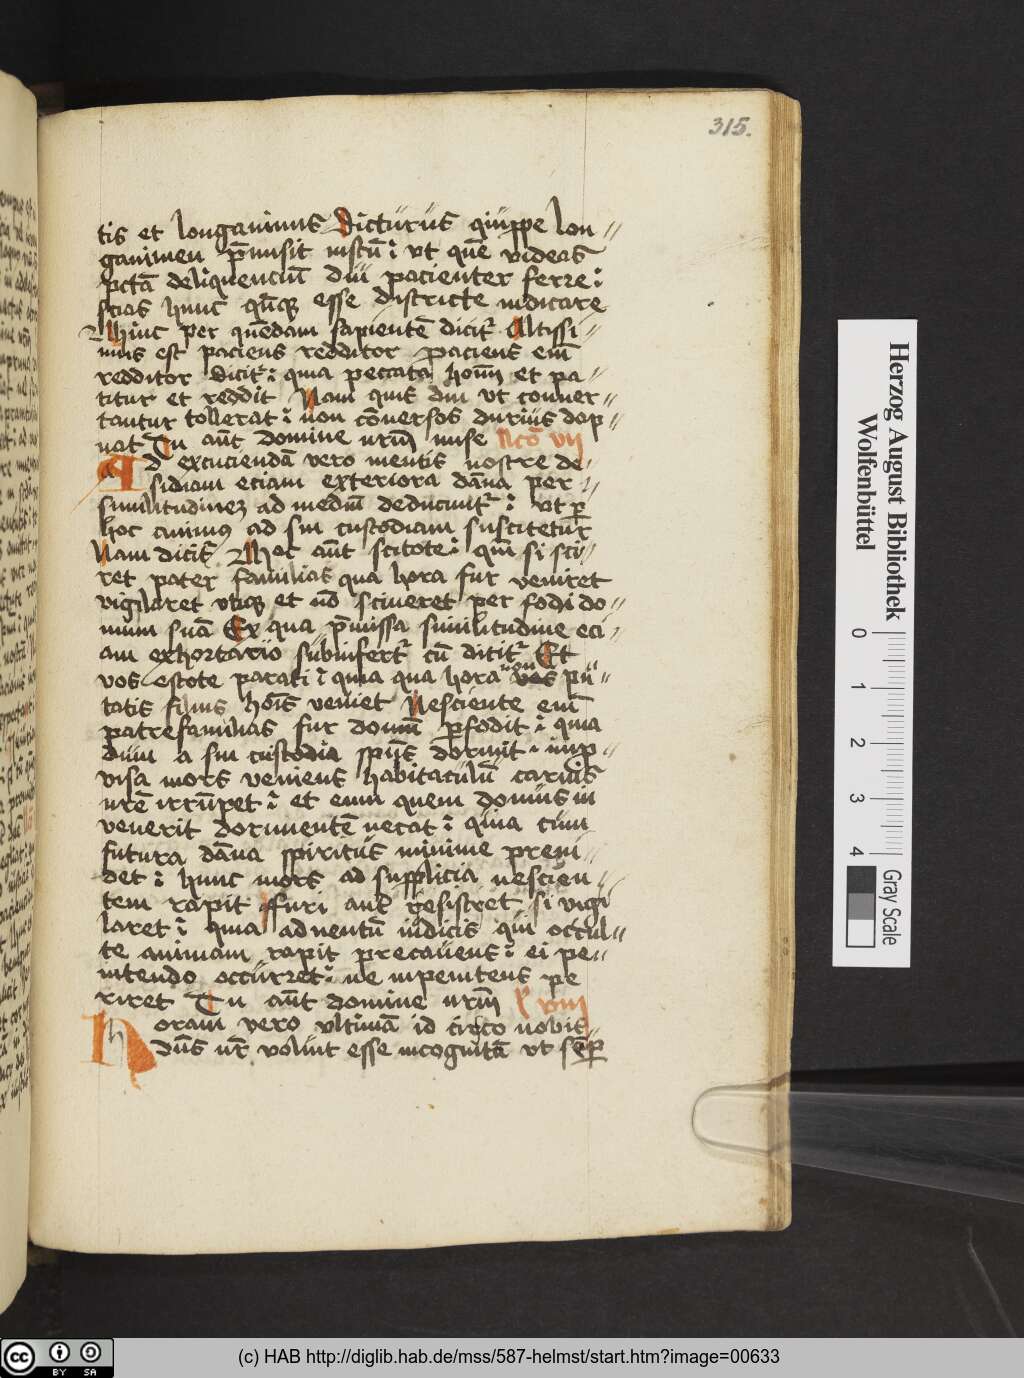 315.
tis et longanimis Dicturus quippe lon〃
ganimen p̄misit iustū ⁊ vt quē videas
pctā deliquenciū diu pacienter ferre ⁊
scias hunc qn̄q esse districte iudicare
Hinc per quēdam sapientē dicit᷑ Altissi〃
mus est paciens redditor paciens em̄
redditor dicit᷑ ⁊ quia peccata hoım̄ et pa〃
titur et reddit Nam quos diu vt conuer〃
tantur tollerat ⁊ non cōuersos durius dap〃
nat Tu aūt domine nr̄m mise Lc̄o vij
Ad excuciendā vero mentis nostre de〃
sidiam eciam exteriora dāna per〃
similitudinez ad mediū deducūtur ⁊ vt p̱
hoc animus ad sui custodiam suscitetur
Nam dicit᷑ Hoc aūt scitote ⁊ qm̄ si sci〃
ret pater familias qua hora fur veniret
vigilaret vtiq et nō sineret per fodi do〃
mum suā Ex qua p̄missa similitudine eci〃
am exhortatio subinfert᷑ cū dicit᷑ Et
vos estote parati ⁊ quia qua hora nō pu〃
tatis filius hoı̄s veniet Nesciente em̄
patrefamilias fur domū p̱fodit ⁊ quia
dum a sui custodia spūs dormit ⁊ inp〃
visa mors veniens habitaculū carnis
nr̄e irrūpet ⁊ et eum quem domus in
venerit dormientē necat ⁊ quia cum
futura dāna spiritus minime preui〃
det ⁊ hunc mors ad supplicia nescien〃
tem rapit Furi aut̄ resisteret si vigi
laret ⁊ quia aduentū iudicis qui occul〃
te animam rapit precauens ⁊ ei pe〃
nitendo occurret ⁊ ne inpenitens pe
riret Tu aūt domine nr̄m Lc̄ viij
Horam vero vltimā id circo nobis〃
dn̄s nr̄ voluit esse incognitā vt sēp̱
Herzog August Bibliothek
Wolfenbüttel
0 1 2 3 4
Gray Scale
cc BY SA
(c) HAB http://diglib.hab.de/mss/587-helmst/start.htm?image=00633